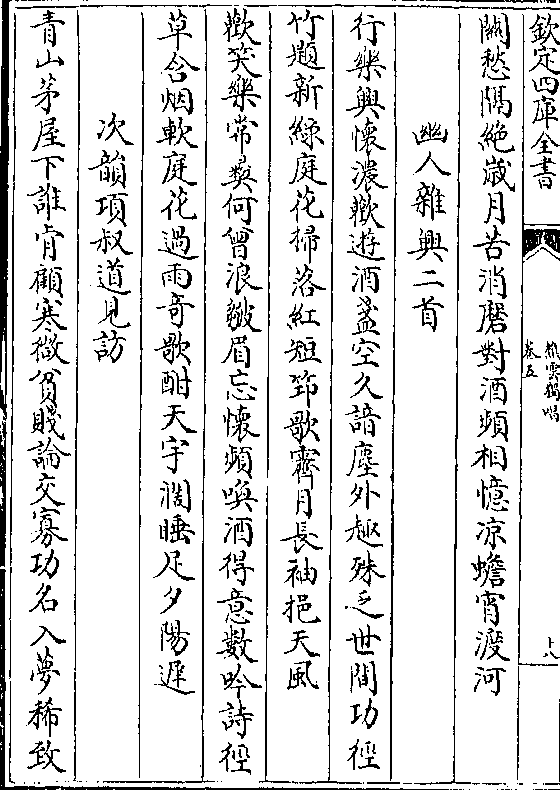 欽定四庫全書
龜雲獨唱
卷五
十八
關愁隔絶歲月苦消磨對酒頻相憶凉蟾宵渡河
幽人雜興二首
行樂興懷濃歡遊酒盞空久諳塵外趣殊乏世間功徑
竹題新緑庭花掃落紅短筇歌霽月長袖挹天風
歡笑樂常獎何曾浪皺眉忘懷頻喚酒得意數吟詩徑
草含烟軟庭花過雨竒歌酣天宇濶睡足夕陽遲
次韻項叔道見訪
青山茅屋下誰肯顧寒微貧賤論交寡功名入夢稀致